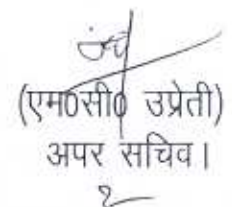 (एम0सी0 उप्रेती)
अपर सचिव।